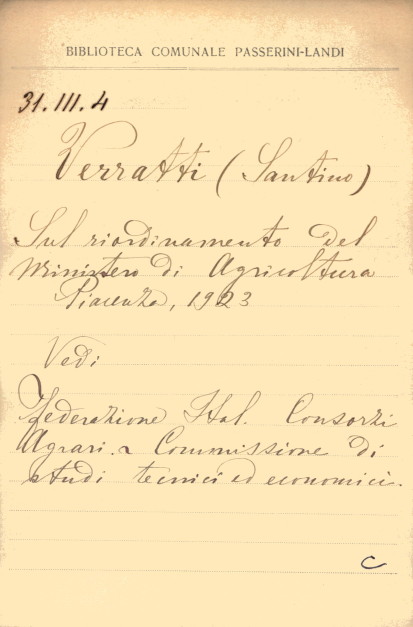 BIBLIOTECA COMUNALE PASSERINI-LANDI
31. III. 4
Verratti (Santino)
Sul riordinamento del
Ministero di Agricoltura
Piacenza, 1923
Vedi
Federazione Ital. Consorzi
Agrari. Commissione di
studi tecnici ed economici.
C